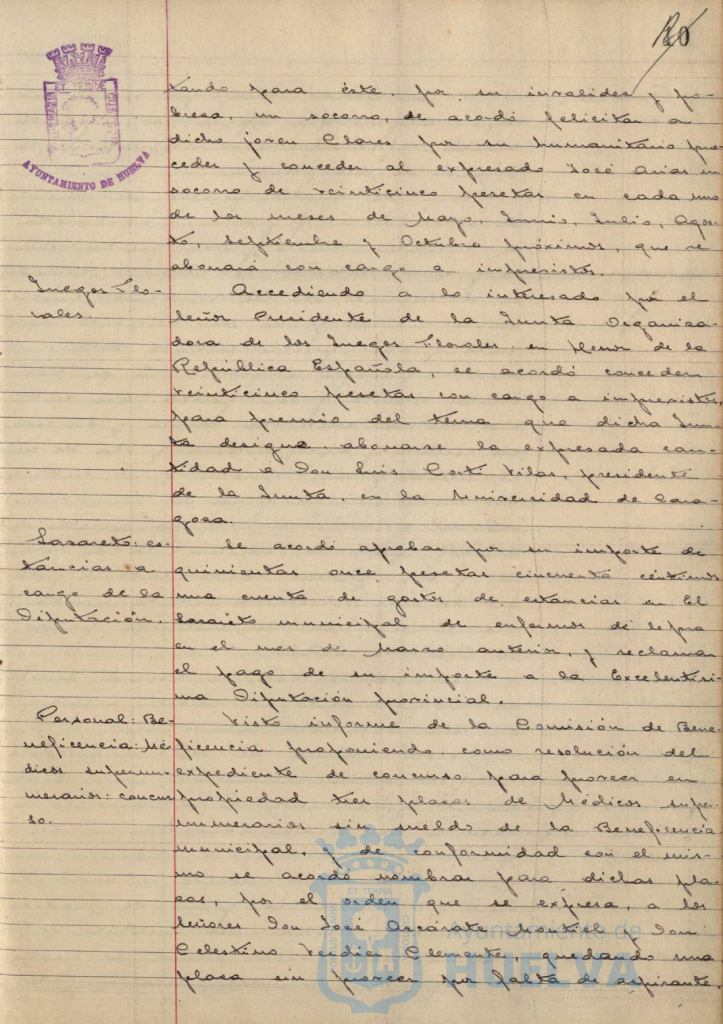 20
AYUNTAMIENTO DE HUELVA
tando para éste, por su invalidez y po-
breza, un socorro, se acordó felicitar a
dicho joven Clares por su humanitario pro-
ceder y conceder al expresado José Arias un
socorro de veinticinco pesetas en cada uno
de los meses de Mayo, Junio, Julio, Agos-
to, Septiembre y Octubre próximos, que se
abonará con cargo a imprevistos.
Juegos Flo-
rales.
Accediendo a lo interesado por el
Señor Presidente de la Junta Organiza-
dora de los Juegos Florales en honor de la
República Española, se acordó conceder
veinticinco pesetas con cargo a imprevistos,
para premio del tema que dicha Jun-
ta designe, abonarse la expresada can-
tidad a Don Luis Vilas, presidente
de la Junta, en la Universidad de Zara-
goza.
Lazareto: es-
tancias a
cargo de la
Diputación.
Se acordó aprobar por su importe de
quinientas once pesetas cincuenta céntimos
una cuenta de gastos de estancias en El
Lazareto municipal de enfermos de lepra
en el mes de Marzo anterior, y reclamar
el pago de su importe a la Excelentísi-
ma Diputación provincial.
Personal: Be-
neficencia: Mé-
dicos supernu-
merarios: concur-
so.
Visto informe de la Comisión de Bene-
ficencia proponiendo como resolución del
expediente de concurso para proveer en
propiedad tres plazas de Médicos super-
numerarios sin sueldo de la Beneficencia
municipal, y de conformidad con el mis-
mo se acordó nombrar para dichas pla-
zas, por el orden que se expresa, a los
Señores Don José Azcárate Montiel y Don
Celestino Verdier Clemente, quedando una
plaza sin proveer por falta de aspirante.
Ayuntamiento de
HUELVA